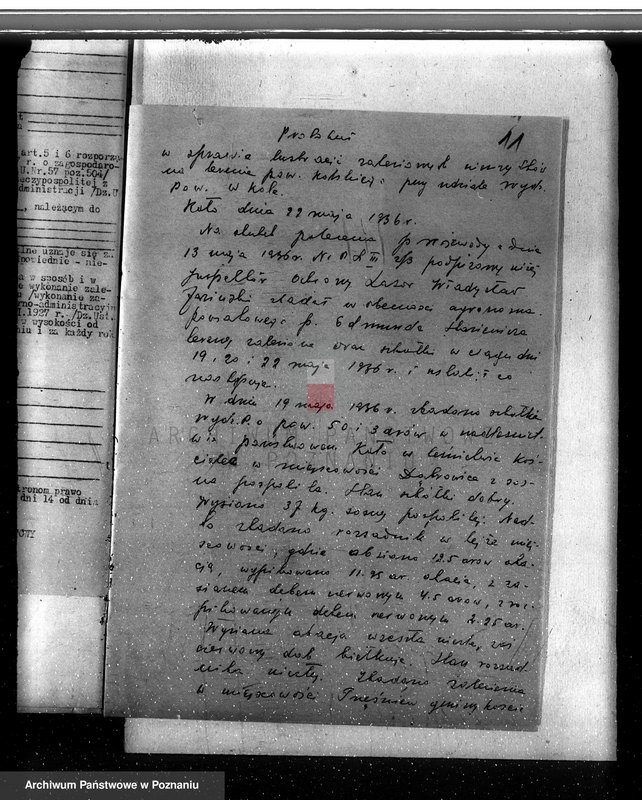 art. 5 i 6 rozporzą-
r. o zagospodaro-
U.Nr.57 poz.504/
eczypospolitej z
dministracji /Dz.U
, należącym do
lne uznaje się za
powiednie - nie-
a w sposób i w
e wykonanie zale-
o /wykonanie za-
yno-administracyjn
I.1927 r. /Dz.Ust.
w wysokości od
niu i za każdy rok
tronom prawo
dni 14 od dnia
11
Protokół
w sprawie lustracji zalesionych
na terenie pow. kolskiego przy udziale Wydz.
Pow. w Kole.
Koło dnia 22 maja 1936 r.
Na skutek polecenia p. Wojewody z dnia
13 maja 1936 r. Nr. 2/3 podpisany niżej
Inspektor Ochrony Lasów Władysław
Jasiński zbadał w obecności agronoma
powiatowego p. Edmunda
tereny zalesione oraz szkółki w ciągu dni
19, 20 i 22 maja 1936 r. i ustalił co
następuje.
W dniu 19 maja 1936 r. zbadano szkółkę
pow. 50 i 3 arów w nadleśnict-
wie państwowem Koło w leśnictwie Koś-
cielec w miejscowości Dobrowica z sos-
ną pospolitą. Stan szkółki dobry.
Wysiano 37 kg. sosny pospolitej. Nad-
to zbadano rozsadnik w tejże miej-
scowości, gdzie obsiano 13.5 arów aka-
cją, wypikowano 11.25 ar. akacją, z za-
sianem dębem czerwonym 4.5 arów, z wy-
pikowanym dębem czerwonym 2.25 ar.
Wysiana akacja wzeszła
czerwony dąb kiełkuje. Stan rozsad-
nika Zbadano zalesienia
w miejscowości gminy Kości
Archiwum Państwowe w Poznaniu